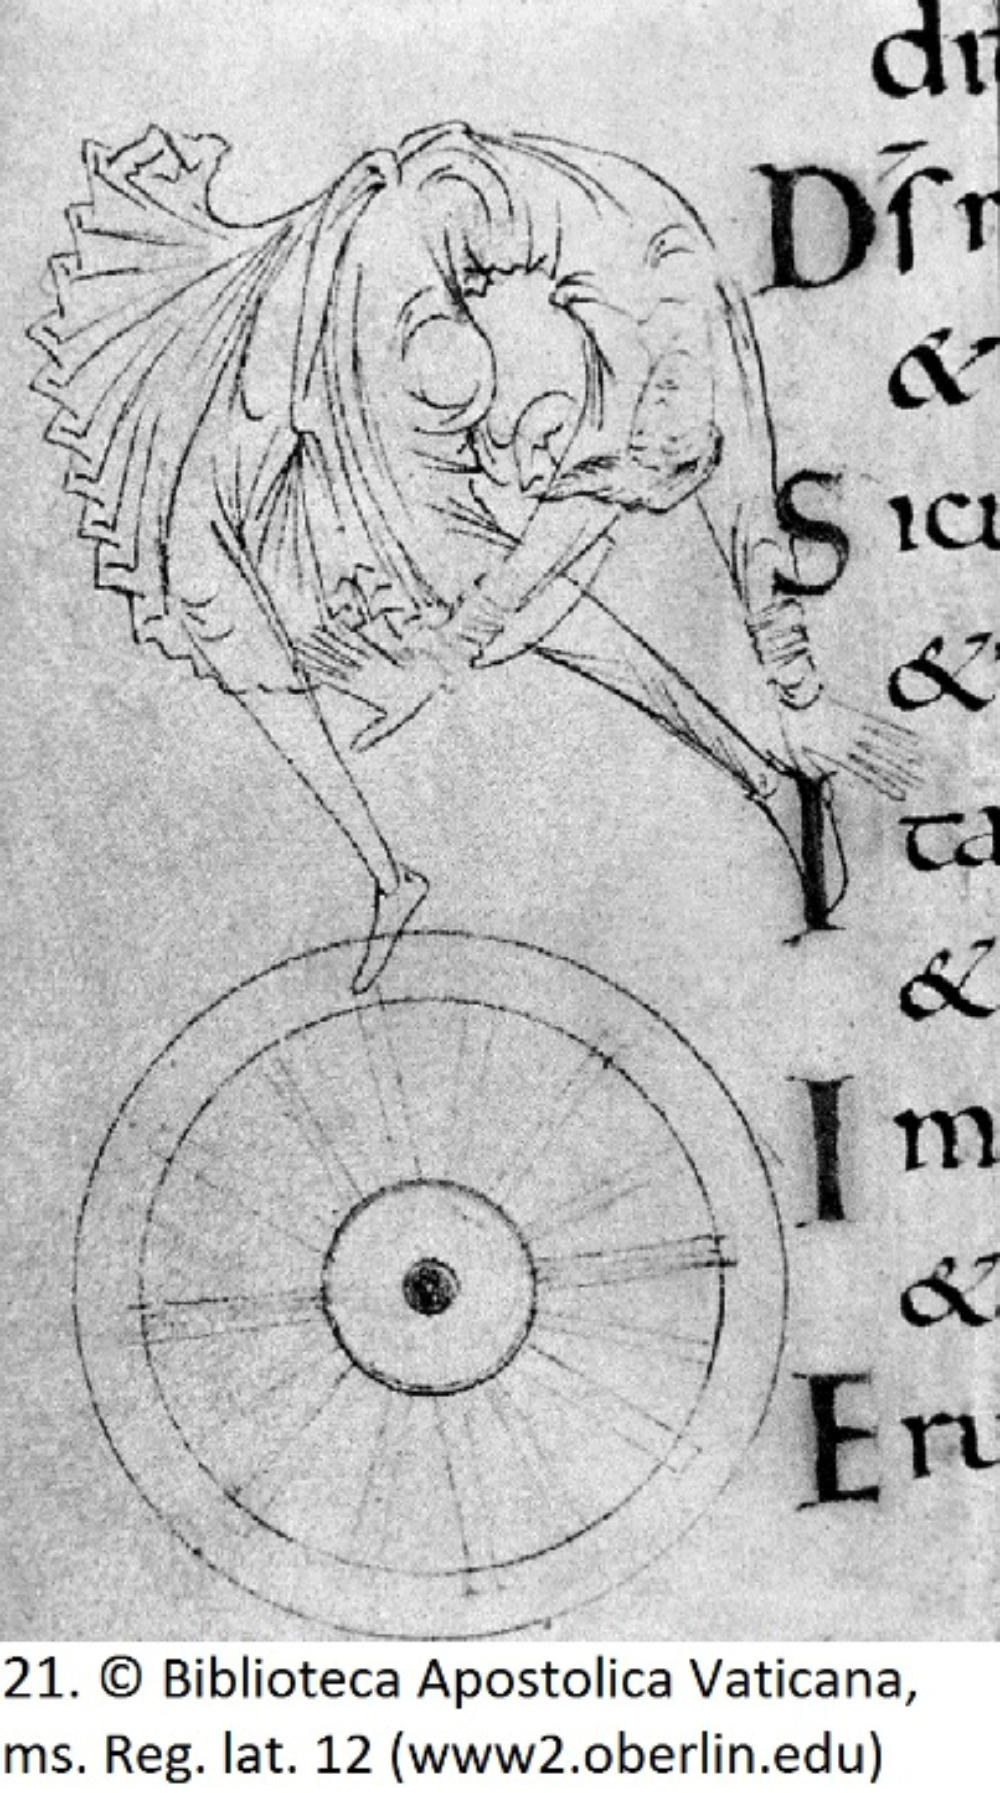 dn
Dſ n
&
Sicu
&
Ita
&
Im
&
Eru
21. © Biblioteca Apostolica Vaticana,
ms. Reg. lat. 12 (www2.oberlin.edu)